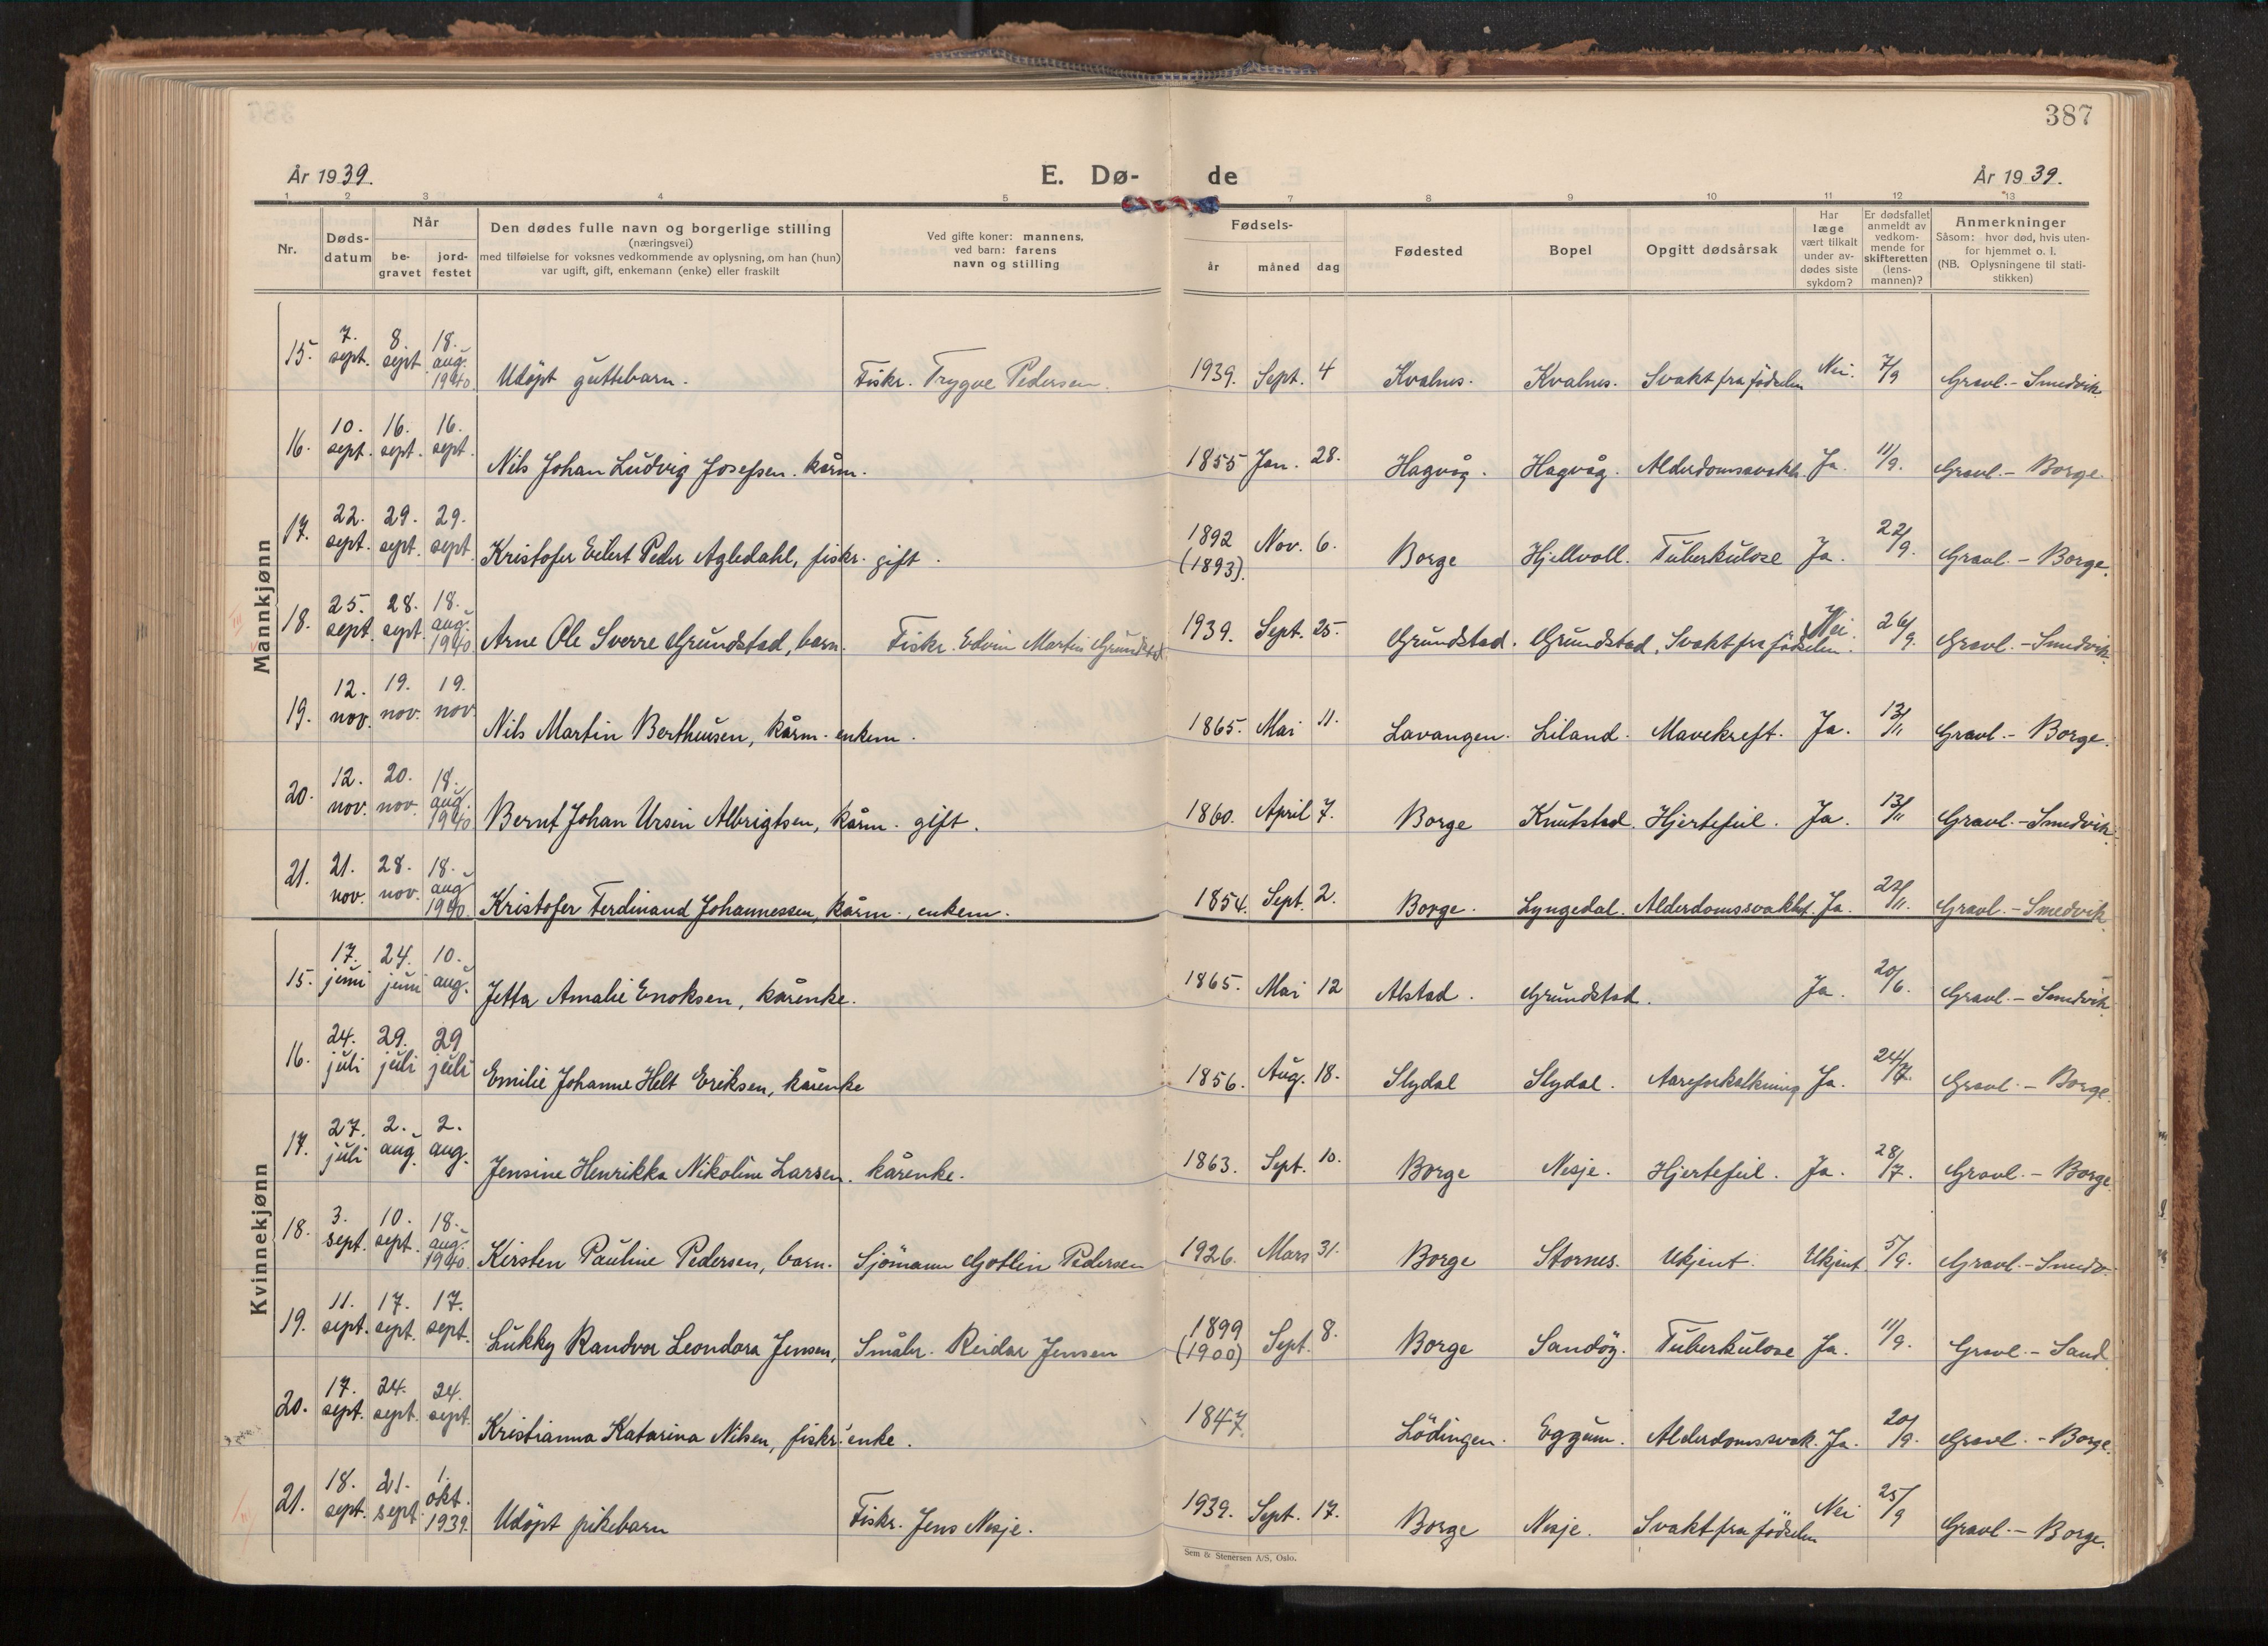 387
År 1939. E. Dø- de År 1939.
1 2 3 4 5 7 8 9 10 11 12 13
Nr. Døds-datum Når be-gravet jord-festet Den dødes fulle navn og borgerlige stilling (næringsvei) med tilføielse for voksnes vedkommende av oplysning, om han (hun) var ugift, gift, enkemann (enke) eller fraskilt Ved gifte koner: mannens, ved barn: farens navn og stilling Fødsels- år måned dag Fødested Bopel Opgitt dødsårsak Har læge vært tilkalt under av-dødes siste sykdom? Er dødsfallet anmeldt av vedkom-mende for skifteretten (lens-mannen)? Anmerkninger Såsom: hvor død, hvis uten-for hjemmet o. l. (NB. Oplysningene til stati-stikken)
Mannkjønn
15. 7. sept. 8. sept. 18. aug. 1940 Udöpt guttebarn. Fiskr. Trygve Pedersen. 1939. Sept. 4 Kvalnes. Kvalnes. Svakt fra födselen Nei. 7/9 Gravl. - Smedvik.
16. 10. sept. 16. sept. 16. sept. Nils Johan Ludvig Josefsen. kårm. 1855 Jan. 28. Hagvåg. Hagvåg. Alderdomssvakh. Ja. 11/9. Gravl. - Borge.
17. 22. sept. 29. sept. 29. sept. Kristofer Eilert Peder Agledahl, fiskr. gift. 1892 (1893). Nov. 6. Borge Hjellvoll. Tuberkulose Ja. 22/9. Gravl. - Borge.
18. 25. sept. 28. sept. 18. aug. 1940 Arne Ole Sverre Grundstad, barn. Fiskr. Edvin Martin Grundstad 1939. Sept. 25. Grundstad. Grundstad. Svakt fra födselen. Nei. 26/9. Gravl. - Smedvik.
19. 12. nov. 19. nov. 19. nov. Nils Martin Bertheusen, kårm. enkem. 1865. Mai 11. Lavangen. Liland. Mavekreft. Ja. 13/11 Gravl. - Borge.
20. 12. nov. 20. nov. 18. aug. 1940 Bernt Johan Ursin Albrigtsen, kårm. gift. 1860. April 7. Borge Knutstad. Hjertefeil. Ja. 13/11 Gravl. - Smedvik.
21. 21. nov. 28. nov. 18. aug 1940. Kristofer Ferdinand Johannessen, kårm., enkem. 1854. Sept. 2. Borge. Lyngedal. Alderdomssvakhet. Ja. 22/11. Gravl. - Smedvik.
Kvinnekjønn
15. 17. juni 24. juni 10. aug. Jetta Amalie Enoksen, kårenke. 1865. Mai 12 Alstad. Grundstad. Ja. 20/6. Gravl. - Smedvik.
16. 24. juli 29. juli 29 juli Emilie Johanne Helt Eriksen, kårenke 1856. Aug. 18. Slydal Slydal. Aareforkalkning Ja. 24/7. Gravl. - Borge.
17. 27. juli 2. aug. 2. aug. Jensine Henrikka Nikoline Larsen. kårenke. 1863. Sept. 10. Borge Nesje. Hjertefeil. Ja. 28/7. Gravl. - Borge.
18. 3. sept. 10. sept. 18. aug. 1940. Kirsten Pauline Pedersen, barn. Sjömann Gotlin Pedersen 1926. Mars 31. Borge Stornes. Ukjent. Ukjent. 5/9. Gravl. - Smedv.
19. 11. sept. 17. sept. 17. sept. Lukky Randvor Leondora Jensen, Småbr. Reidar Jensen 1899 (1900) Sept. 8. Borge Sandöy. Tuberkulose Ja. 11/9. Gravl. - Sand
20. 17. sept. 24. sept. 24. sept. Kristianna Katarina Nilsen, fiskr. enke. 1847. Lödingen. Eggum. Alderdomssvak. Ja. 20/9. Gravl. - Borge.
21. 18. sept. 21. sept. 1. okt. 1939. Udöpt pikebarn Fiskr. Jens Nesje. 1939. Sept. 17. Borge Nesje. Svakt fra födselen Nei 25/9 Gravl. - Borge.
Sem & Stenersen A/S, Oslo.